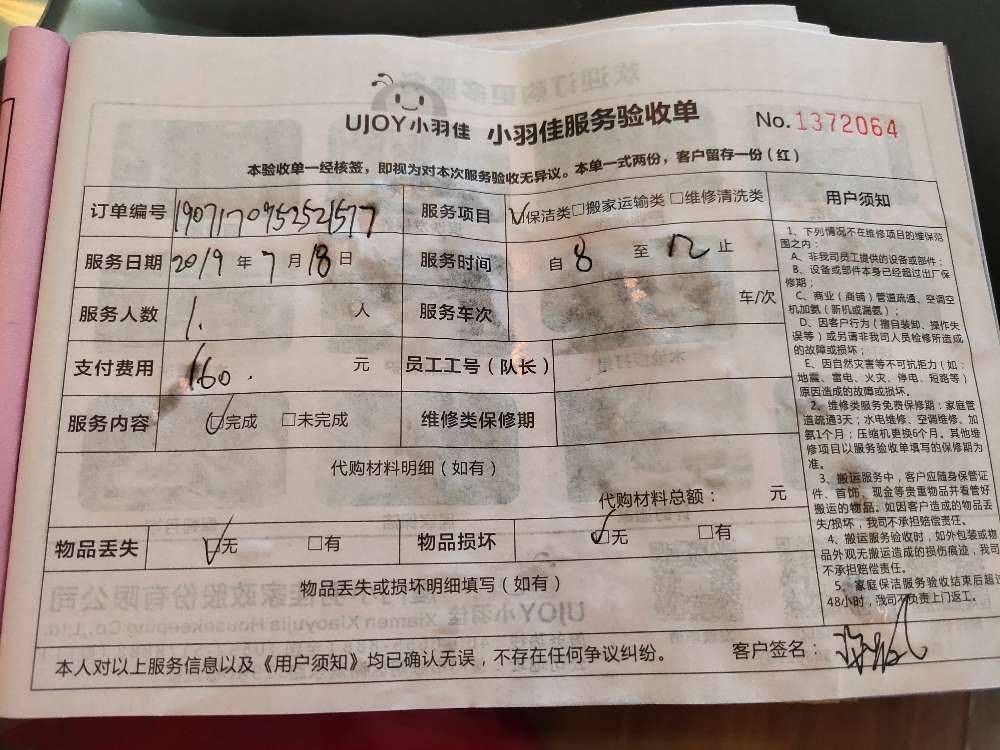 UJOY小羽佳 小羽佳服务验收单 No.1372064
本验收单一经核签，即视为对本次服务验收无异议。本单一式两份，客户留存一份（红）
订单编号 1907170952521577 服务项目 保洁类 搬家运输类 维修清洗类
服务日期 2019 年 7 月 18 日 服务时间 自 8 至 12 止
服务人数 1. 人 服务车次 车/次
支付费用 160. 元 员工工号（队长）
服务内容 完成 未完成 维修类保修期
代购材料明细（如有）
代购材料总额： 元
物品丢失 无 有 物品损坏 无 有
物品丢失或损坏明细填写（如有）
本人对以上服务信息以及《用户须知》均已确认无误，不存在任何争议纠纷。 客户签名：
用户须知
1、下列情况不在维修项目的维保范
围之内：
A、非我司员工提供的设备或部件；
B、设备或部件本身已经超过出厂保
修期；
C、商业（商铺）管道疏通、空调空
机加氨（新机或漏氨）；
D、因客户行为（擅自装卸、操作失
误等）或另请非我司人员检修所造成
的故障或损坏；
E、因自然灾害等不可抗拒力（如：
地震、雷电、火灾、停电、短路等）
原因造成的故障或损坏。
2、维修类服务免费保修期：家庭管
道疏通3天；水电维修、空调维修、加
氨1个月；压缩机更换6个月。其他维
修项目以服务验收单填写的保修期为
准。
3、搬运服务中，客户应随身保管证
件、首饰、现金等贵重物品并看管好
搬运的物品。如因客户造成的物品丢
失/损坏，我司不承担赔偿责任。
4、搬运服务验收时，如外包装或物
品外观无搬运造成的损伤痕迹，我司
不承担赔偿责任。
5、家庭保洁服务验收结束后超过
48小时，我司不负责上门返工。